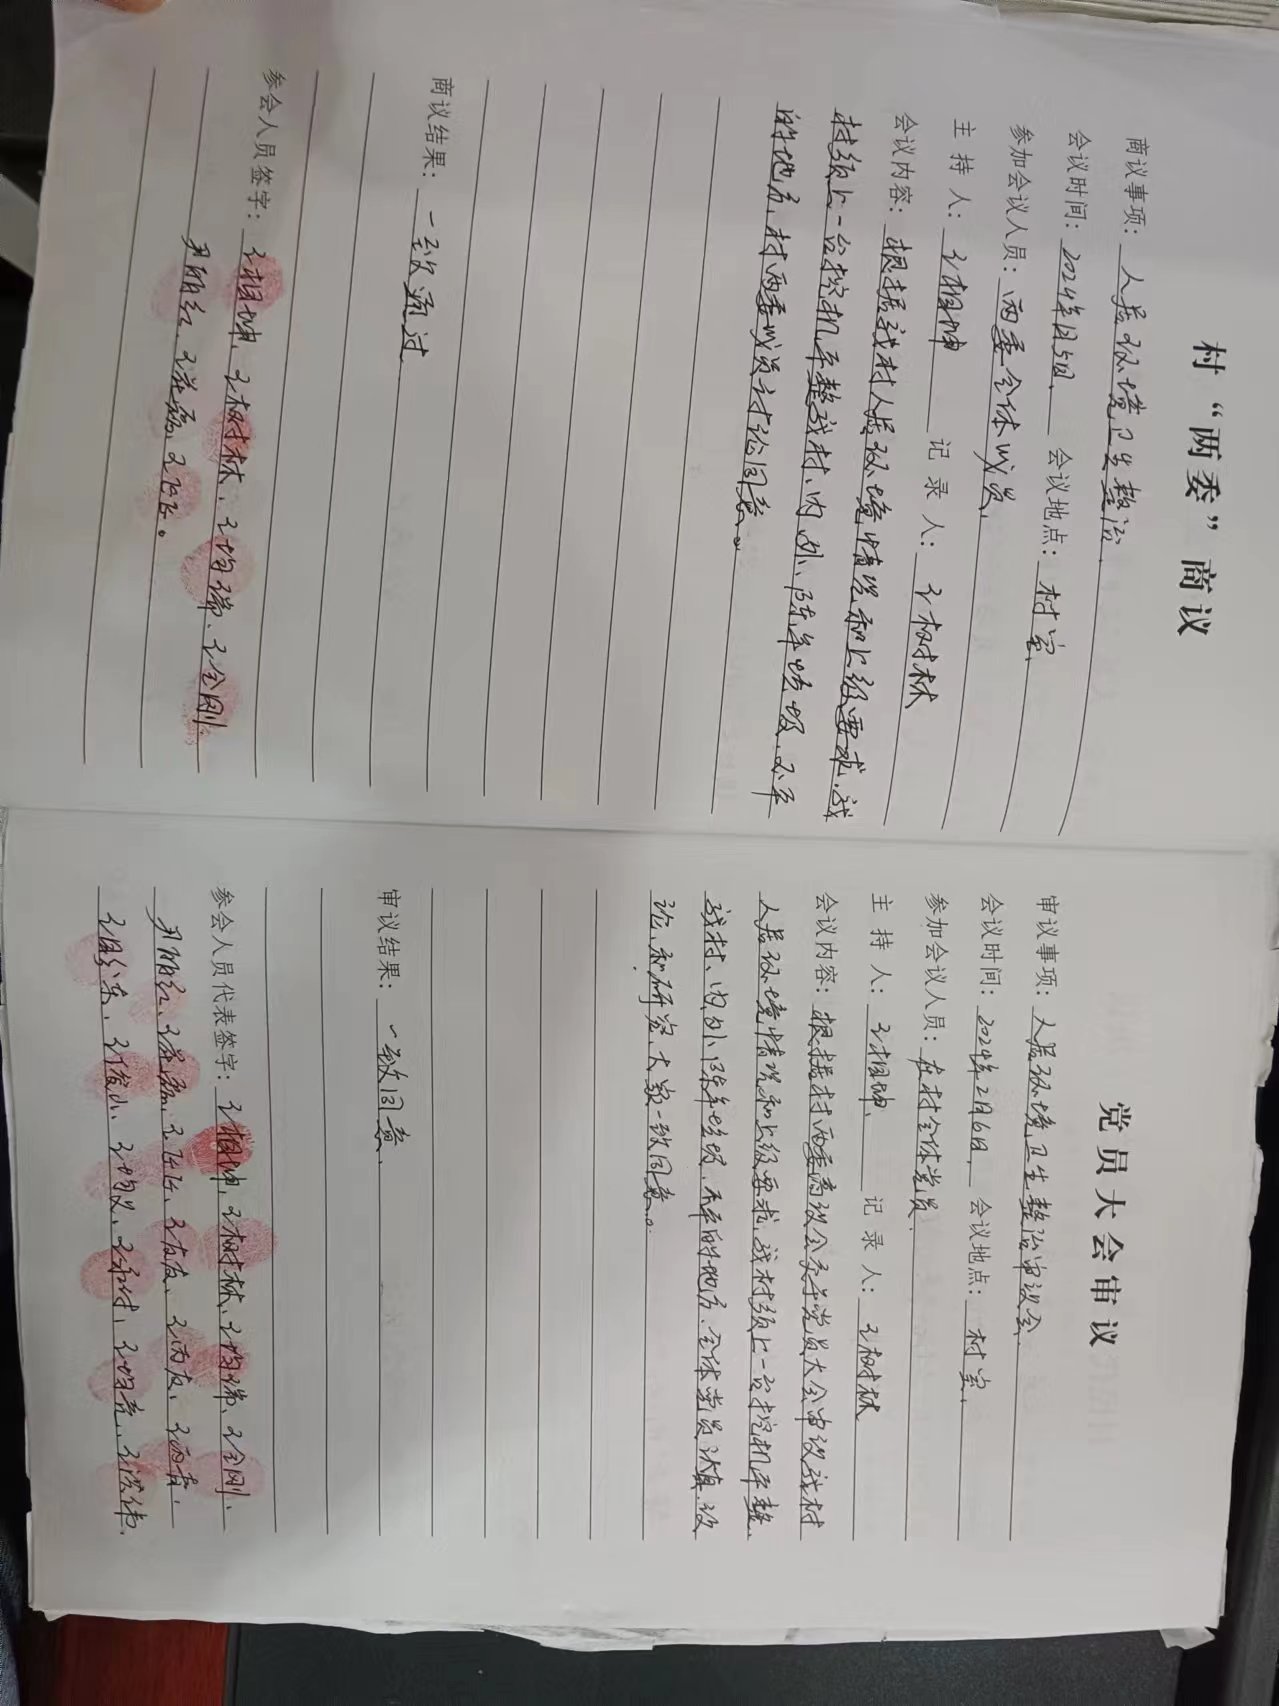 村“两委”商议
商议事项：人居环境卫生整治、
会议时间：2024年月5日、会议地点：村室、
参加会议人员：两委全体成员、
主持人：王相坤 记录人：王树林
会议内容：根据我村人居环境情况和上级要求、我
村须上一台挖机平整我村、内外、陈年垃圾、不平
的地方、村两委成员讨论同意。
商议结果：一致通过
参会人员签字：王相坤、王树林、王均瑞、王全刚、
尹丽红、王
党员大会审议
审议事项：人居环境卫生整治审议会、
会议时间：2024年2月6日、会议地点：村室、
参加会议人员：在村全体党员、
主持人：王相坤、记录人：王树林
会议内容：根据村两委商议会交于党员大会审议我村
人居环境情况和上级要求、我村须上一台挖机平整、
我村、内外陈年垃圾、不平的地方、全体党员认真议
论、和研究、大家一致同意。
审议结果：一致同意、
参会人员代表签字：王相坤、王树林、王均瑞、王全刚、
尹丽红、王